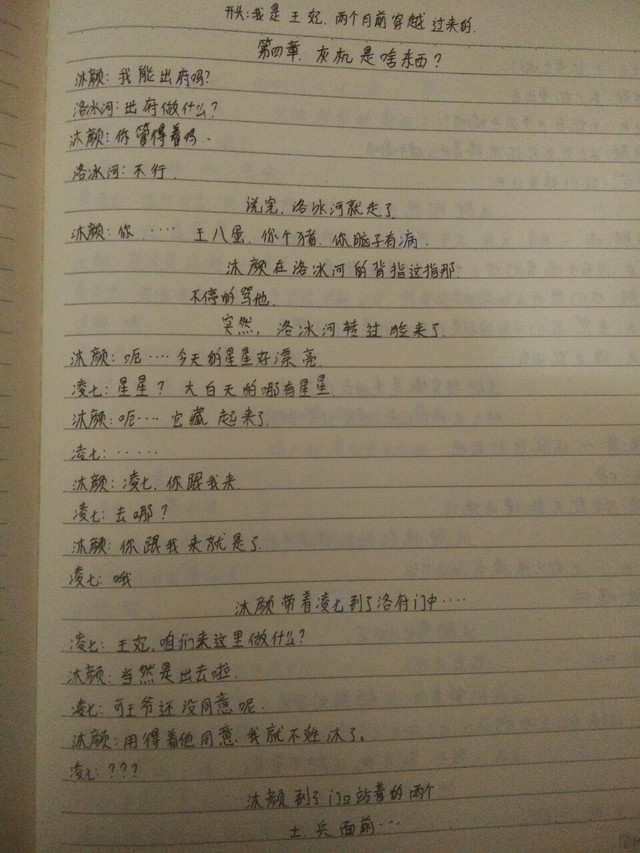 开头:我是王妃.两个月前穿越过来的.
第四章.灰机是啥东西?
沐颜:我能出府吗?
洛冰河:出府做什么?
沐颜:你管得着吗.
洛冰河:不行.
说完,洛冰河就走了.
沐颜:你····王八蛋.你个猪.你脑子有病.
沐颜在洛冰河的背指这指那.
不停的骂他.
突然,洛冰河转过脸来了.
沐颜:呃····今天的星星好漂亮.
凌七:星星?大白天的哪有星星.
沐颜:呃····它藏起来了.
凌七:·····
沐颜:凌七.你跟我来
凌七:去哪?
沐颜:你跟我来就是了.
凌七:哦
沐颜带着凌七到了洛府门中····
凌七:王妃,咱们来这里做什么?
沐颜:当然是出去啦.
凌七:可王爷还没同意呢.
沐颜:用得着他同意.我就不姓沐了。
凌七:???
沐颜到了门口站着的两个
士兵面前···